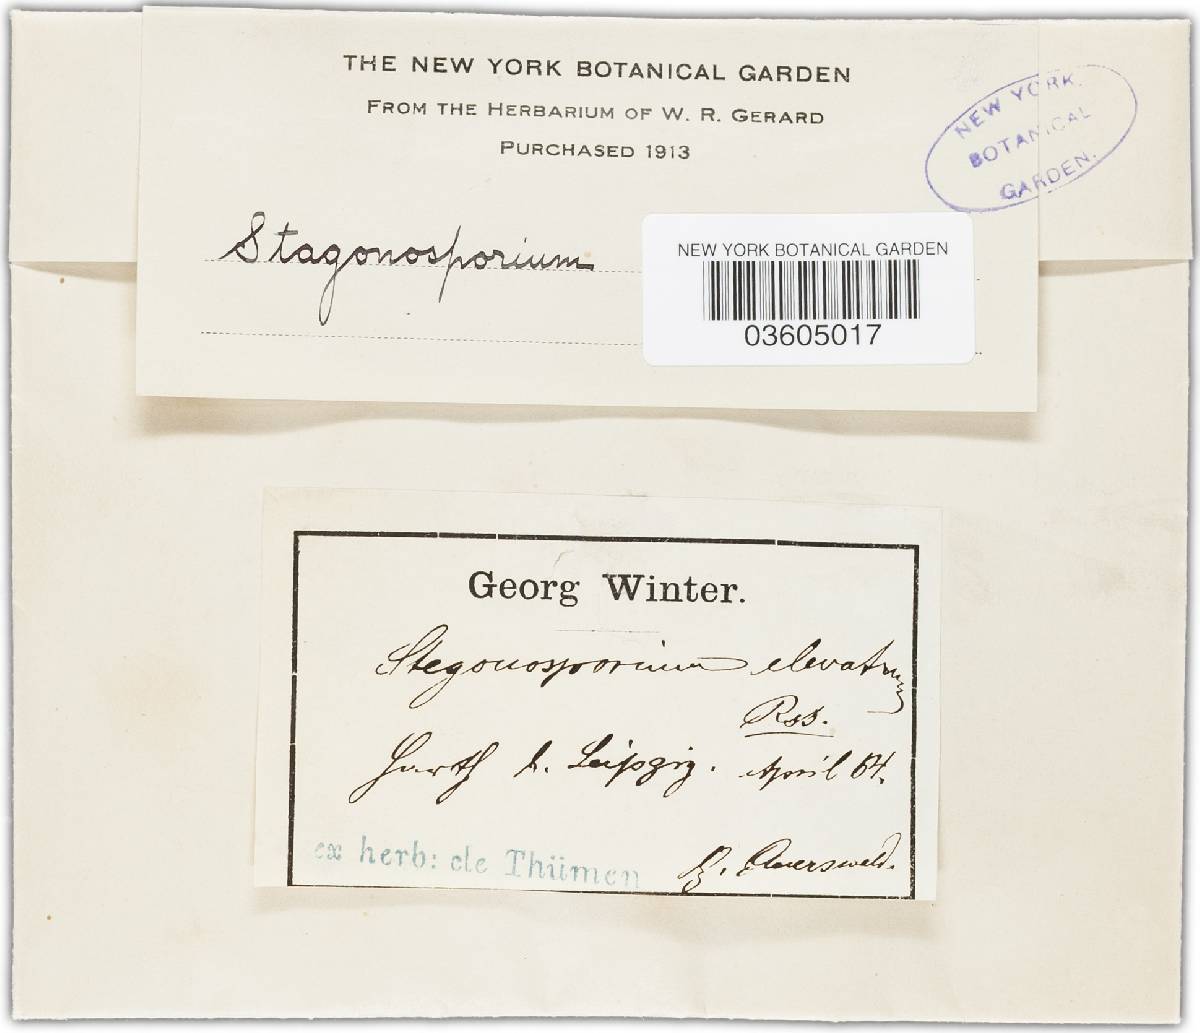 THE NEW YORK BOTANICAL GARDEN
FROM THE HERBARIUM OF W. R. GERARD
PURCHASED 1913
NEW YORK
BOTANICAL
GARDEN.
Stagonosporium
NEW YORK BOTANICAL GARDEN
03605017
Georg Winter.
Stegonosporium elevatum
Harth b. Leipzig. April 64.
ex herb: de Thümen
Auerswald.